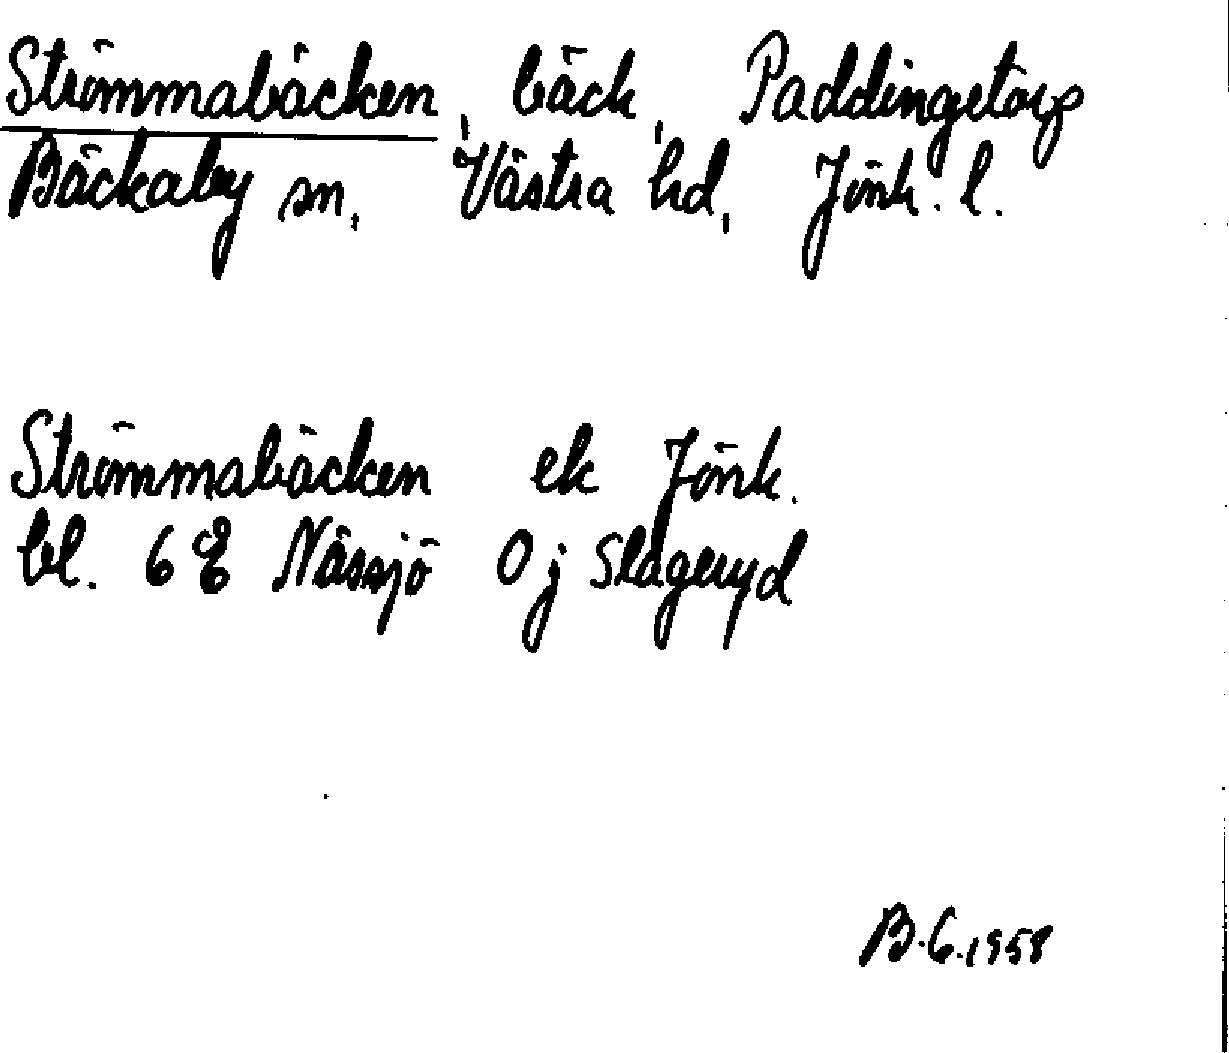 Strömmabäcken, bäck, Paddingetorp
Bäckaby sn, Västra hd, Jönk. l.
Strömmabäcken ek Jönk.
bl. 6 E Nässjö 0 j Slageryd
B.G. 1958